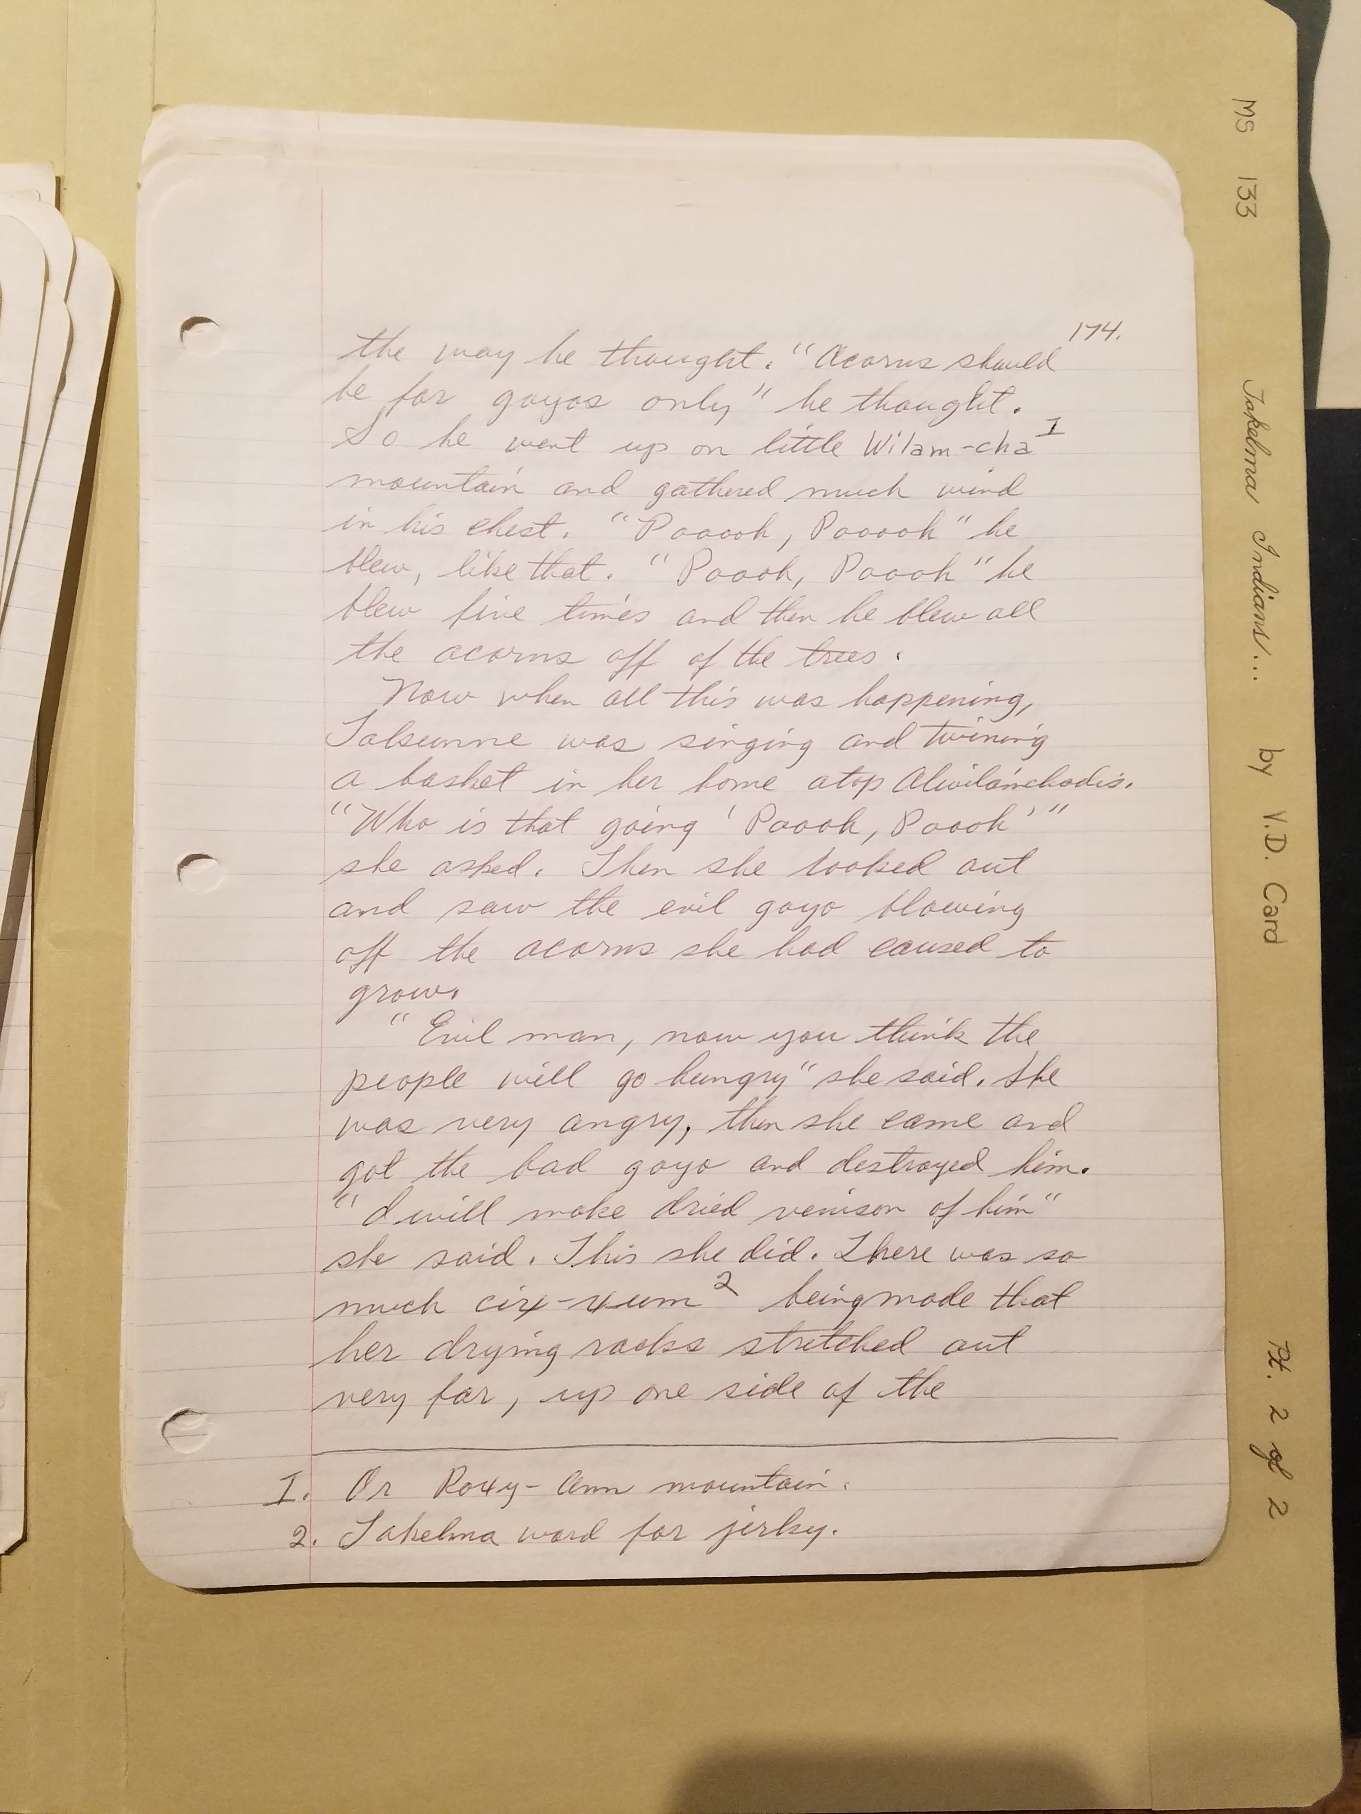 174.
the way he thought. "Acorns should
be for goyos only" he thought.
So he went up on little Wilam-cha I
mountain and gathered much wind
in his chest. "Pooooh, Pooooh" he
blew, like that. "Poooh, Poooh" he
blew five times and then he blew all
the acorns off of the trees.
Now when all this was happening,
Talsunne was singing and twining
a basket in her home atop Alwilamchadis.
"Who is that going 'Poooh, Poooh'"
she asked. Then she looked out
and saw the evil goyo blowing
off the acorns she had caused to
grow.
"Evil man, now you think the
people will go hungry" she said. She
was very angry, then she came and
got the bad goyo and destroyed him.
"I will make dried venison of him"
she said. This she did. There was so
much cix-xum 2 being made that
her drying racks stretched out
very far, up one side of the
I. Or Roxy-Ann mountain.
2. Takelma word for jerky.
MS 133 Takelma Indians... by V.D. Card Pt. 2 of 2